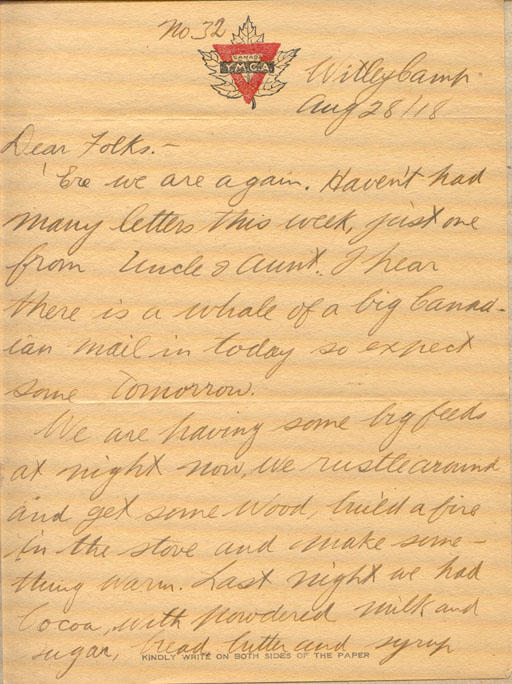 No 32
CANADA
Y.M.C.A
Witley Camp
Aug 28/18
Dear Folks.-
'Ere we are again. Haven't had
many letters this week, just one
from Uncle & Aunt. I hear
there is a whale of a big Canad-
ian mail in today so expect
some Tomorrow.
We are having some big feeds
at night now, we rustle around
and get some wood, build a fire
in the stove and make some-
thing warm. Last night we had
Cocoa, with powdered milk and
sugar, bread butter and syrup
KINDLY WRITE ON BOTH SIDES OF THE PAPER